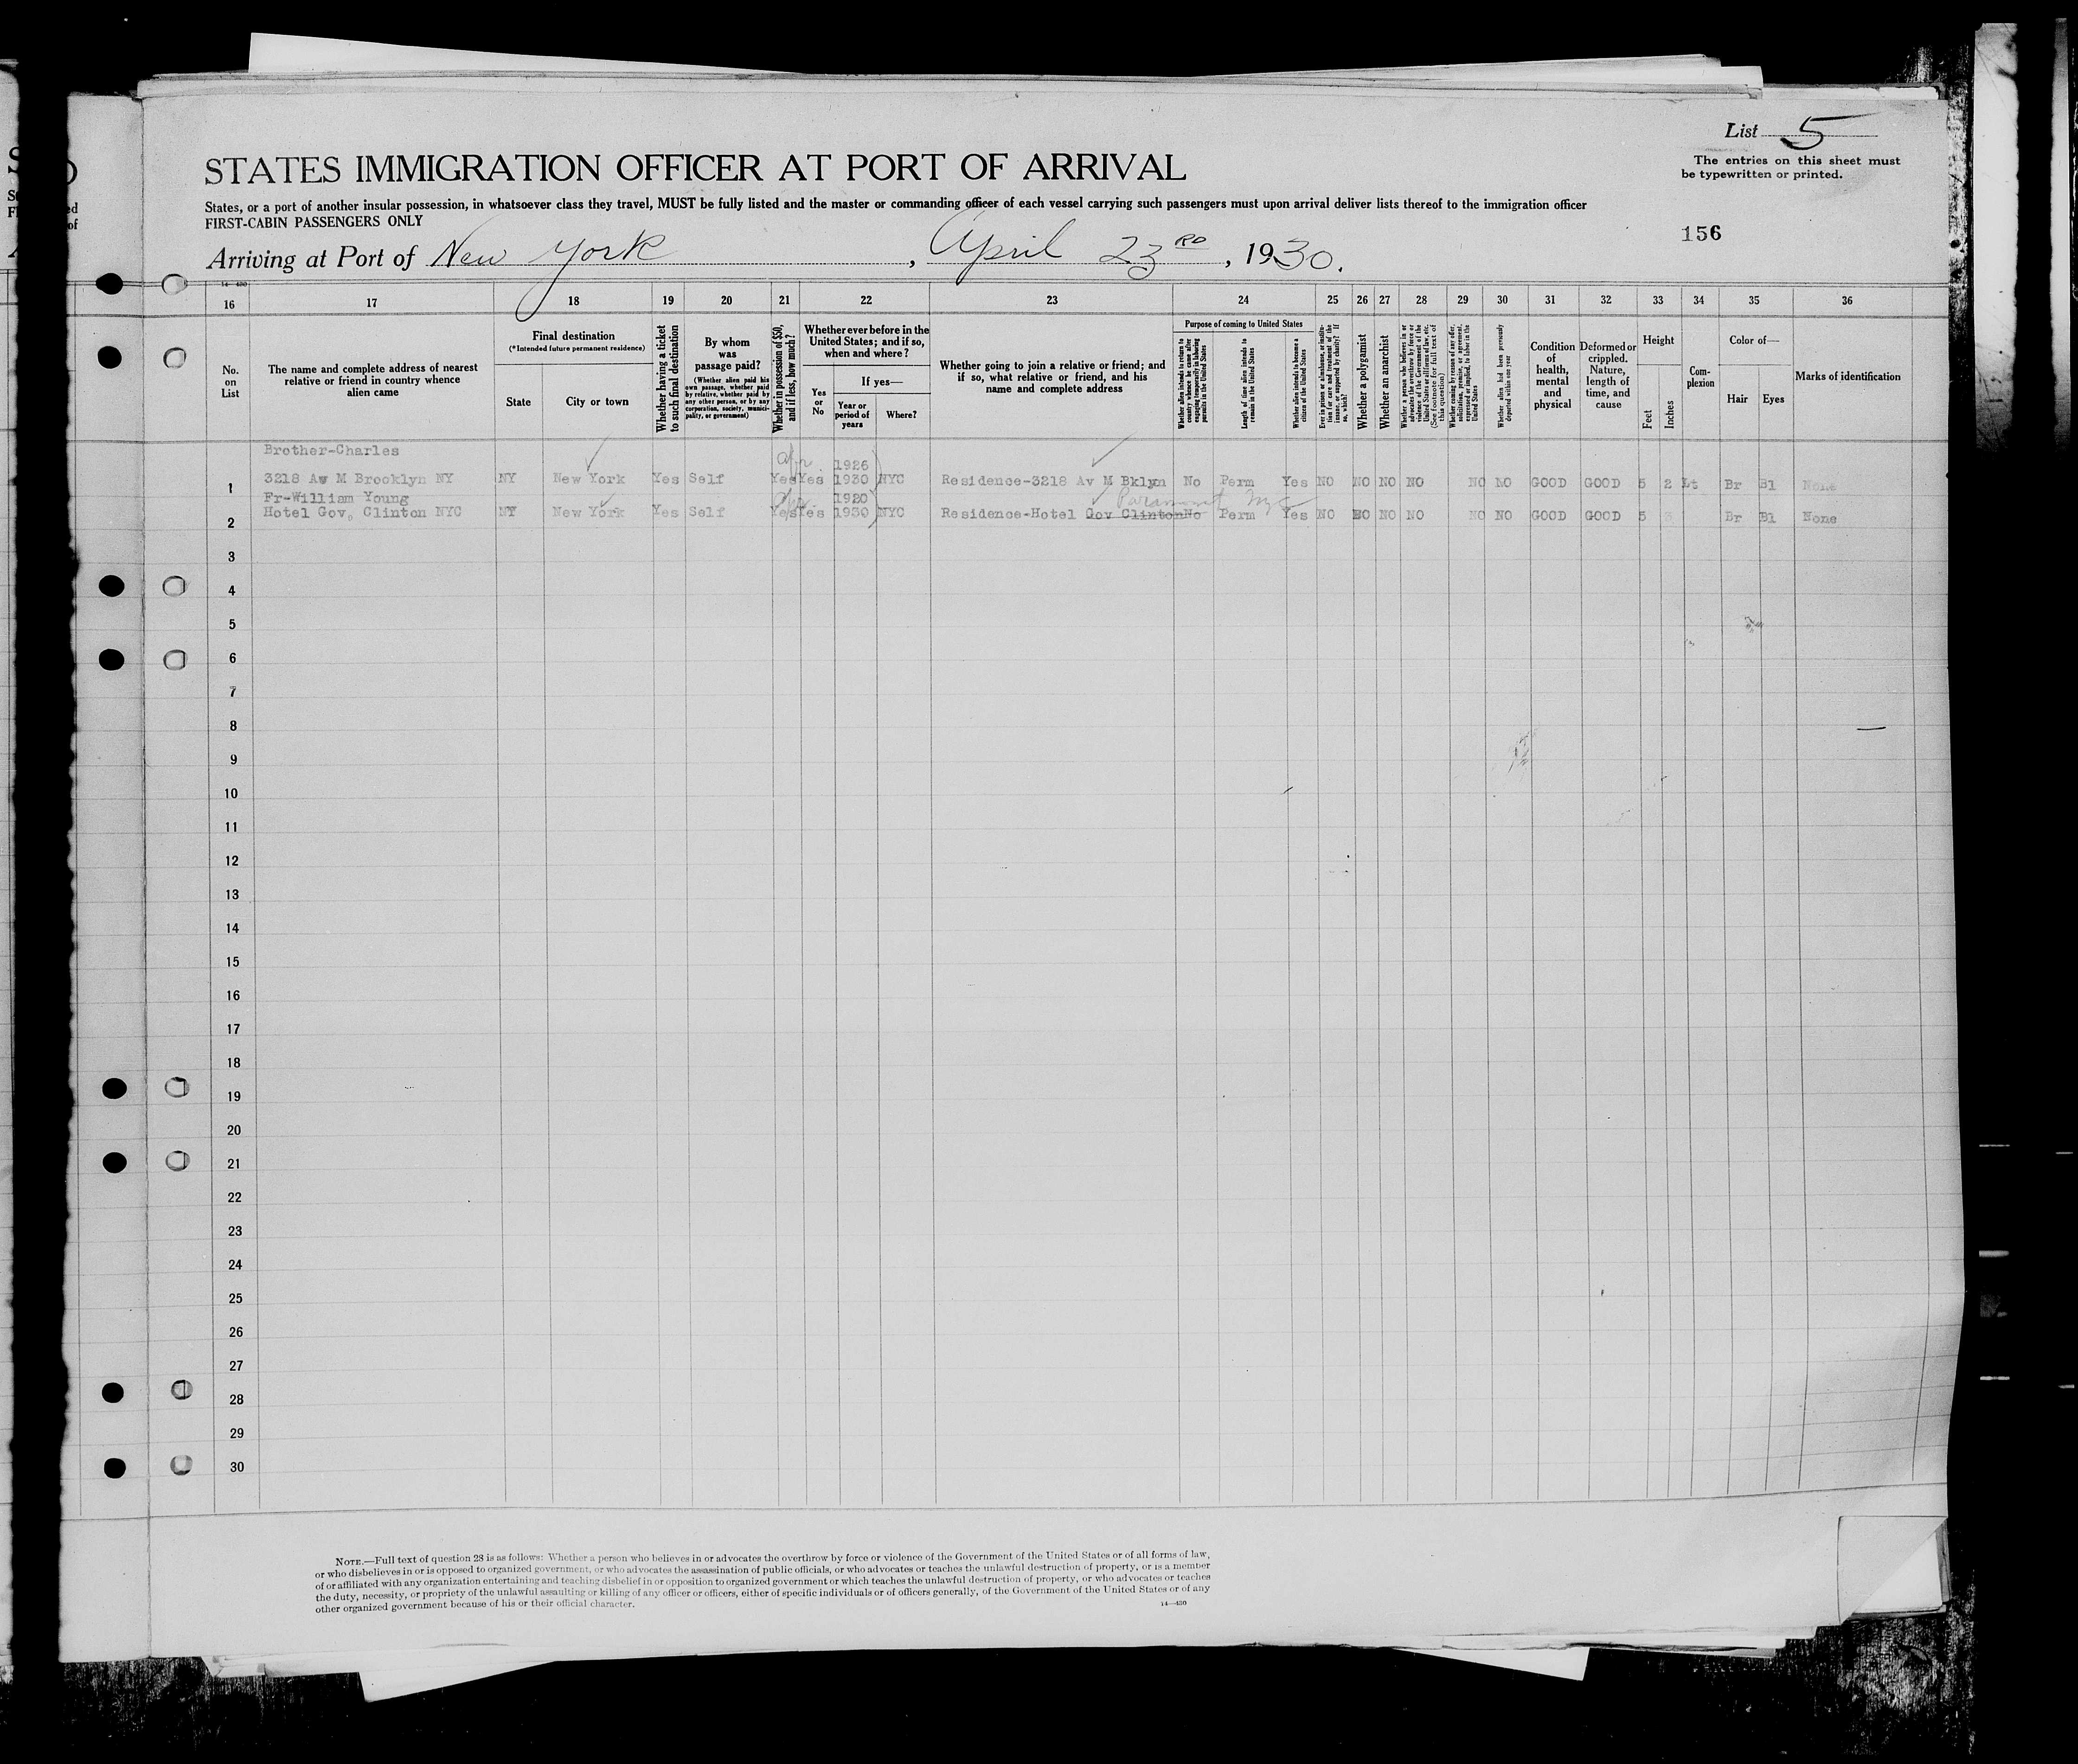 List 5
The entries on this sheet must
be typewritten or printed.
STATES IMMIGRATION OFFICER AT PORT OF ARRIVAL
States, or a port of another insular possession, in whatsoever class they travel, MUST be fully listed and the master or commanding officer of each vessel carrying such passengers must upon arrival deliver lists thereof to the immigration officer
FIRST-CABIN PASSENGERS ONLY
156
Arriving at Port of New York, April 23RD, 1930.
14-430
16 17 18 19 20 21 22 23 24 25 26 27 28 29 30 31 32 33 34 35 36
No. on List
The name and complete address of nearest relative or friend in country whence alien came
Final destination
(*Intended future permanent residence)
State
City or town
Whether having a ticket to such final destination
By whom was passage paid?
(Whether alien paid his own passage, whether paid by relative, whether paid by any other person, or by any corporation, society, municipality, or government)
Whether in possession of $50, and if less, how much?
Whether ever before in the United States; and if so, when and where?
Yes or No
If yes—
Year or period of years
Where?
Whether going to join a relative or friend; and if so, what relative or friend, and his name and complete address
Purpose of coming to United States
Whether alien intends to return to country whence he came after engaging temporarily in laboring pursuits in the United States
Length of time alien intends to remain in the United States
Whether alien intends to become a citizen of the United States
Ever in prison or almshouse or institution for care and treatment of the insane, or supported by charity? If so, which?
Whether a polygamist
Whether an anarchist
Whether a person who believes in or advocates the overthrow by force or violence of the Government of the United States or all forms of law, etc. (See footnote for full text of this question)
Whether coming by reason of any offer, solicitation, promise, or agreement, expressed or implied, to labor in the United States
Whether alien had been previously deported within one year
Condition of health, mental and physical
Deformed or crippled. Nature, length of time, and cause
Height
Feet
Inches
Complexion
Color of—
Hair
Eyes
Marks of identification
Brother-Charles
1 3218 Av M Brooklyn NY NY New York Yes Self Yes Yes 1926 1930 NYC Residence-3218 Av M Bklyn No Perm Yes NO NO NO NO NO NO GOOD GOOD 5 2 Lt Br Bl None
Fr-William Young
Paramount NYC
2 Hotel Gov. Clinton NYC NY New York Yes Self Yes Yes 1920 1930 NYC Residence-Hotel Gov Clinton No Perm Yes NO NO NO NO NO NO GOOD GOOD 5 3 Br Bl None
3
4
5
6
7
8
9
10
11
12
13
14
15
16
17
18
19
20
21
22
23
24
25
26
27
28
29
30
NOTE.—Full text of question 28 is as follows: Whether a person who believes in or advocates the overthrow by force or violence of the Government of the United States or of all forms of law,
or who disbelieves in or is opposed to organized government, or who advocates the assassination of public officials, or who advocates or teaches the unlawful destruction of property, or is a member
of or affiliated with any organization entertaining and teaching disbelief in or opposition to organized government or which teaches the unlawful destruction of property, or who advocates or teaches
the duty, necessity, or propriety of the unlawful assaulting or killing of any officer or officers, either of specific individuals or of officers generally, of the Government of the United States or of any
other organized government because of his or their official character.
14-430